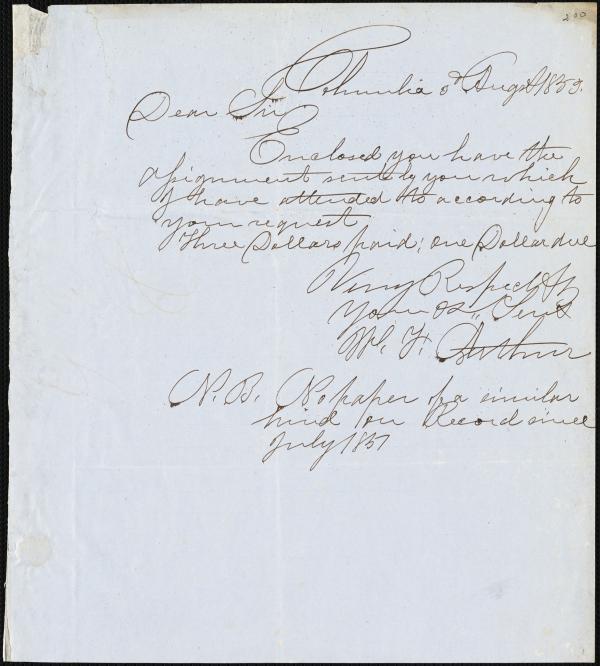 200
Columbia 5th Augst 1853.
Dear Sir
Enclosed you have the
assignment sent by you which
I have attended to according to
your request
Three Dollars paid; one Dollar due
Very Respectfly
Your Obt Servt
W. F. Arthur
N. B. No paper of a similar
kind on Record since
July 1851